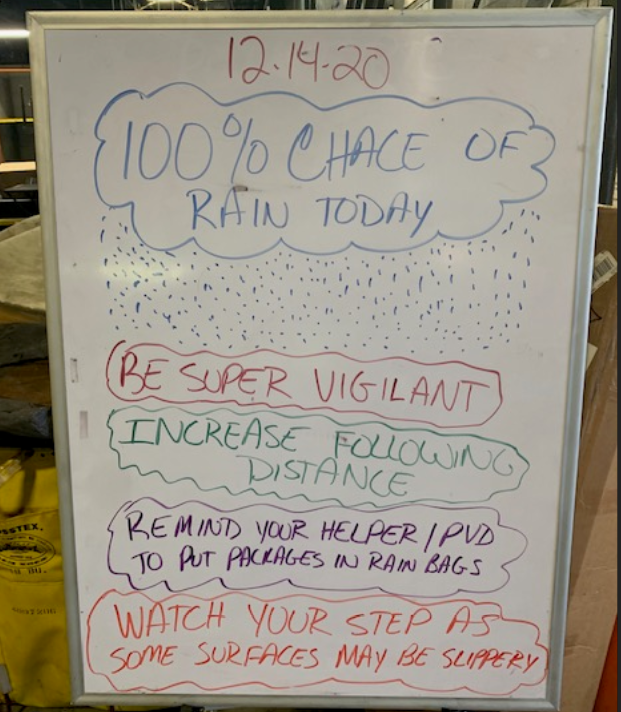 12.14.20
100% CHACE OF
RAIN TODAY
BE SUPER VIGILANT
INCREASE FOLLOWING
DISTANCE
REMIND YOUR HELPER/PVD
TO PUT PACKAGES IN RAIN BAGS
WATCH YOUR STEP AS
SOME SURFACES MAY BE SLIPPERY